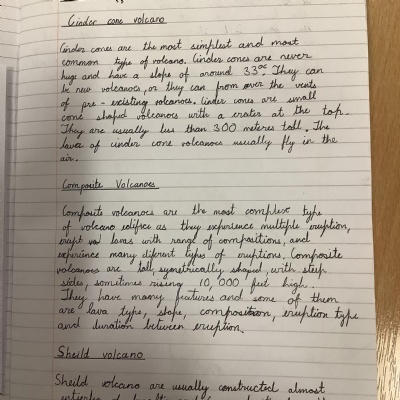 Cinder cone volcano
Cinder cones are the most simplest and most
common type of volcano. Cinder cones are never
huge and have a slope of around 33°c. They can
be new volcanoes, or they can from over the vents
of pre-existing volcanoes. Cinder cones are small
cone shaped volcanoes with a crater at the top.
They are usually less than 300 metres tall. The
lava of cinder cone volcanoes usually fly in the
air.
Composite Volcanoes
Composite volcanoes are the most complex type
of volcano edifice as they experience multiple eruption,
erupt lavas with range of compositions, and
experience many diferent types of eruptions. Composite
volcanoes are tall, symetrically shaped, with steep
sides, sometimes rising 10,000 feet high.
They have many features and some of them
are lava type, slope, composition, eruption type
and duration between eruption.
Sheild volcano
Sheild volcano are usually constructed almost